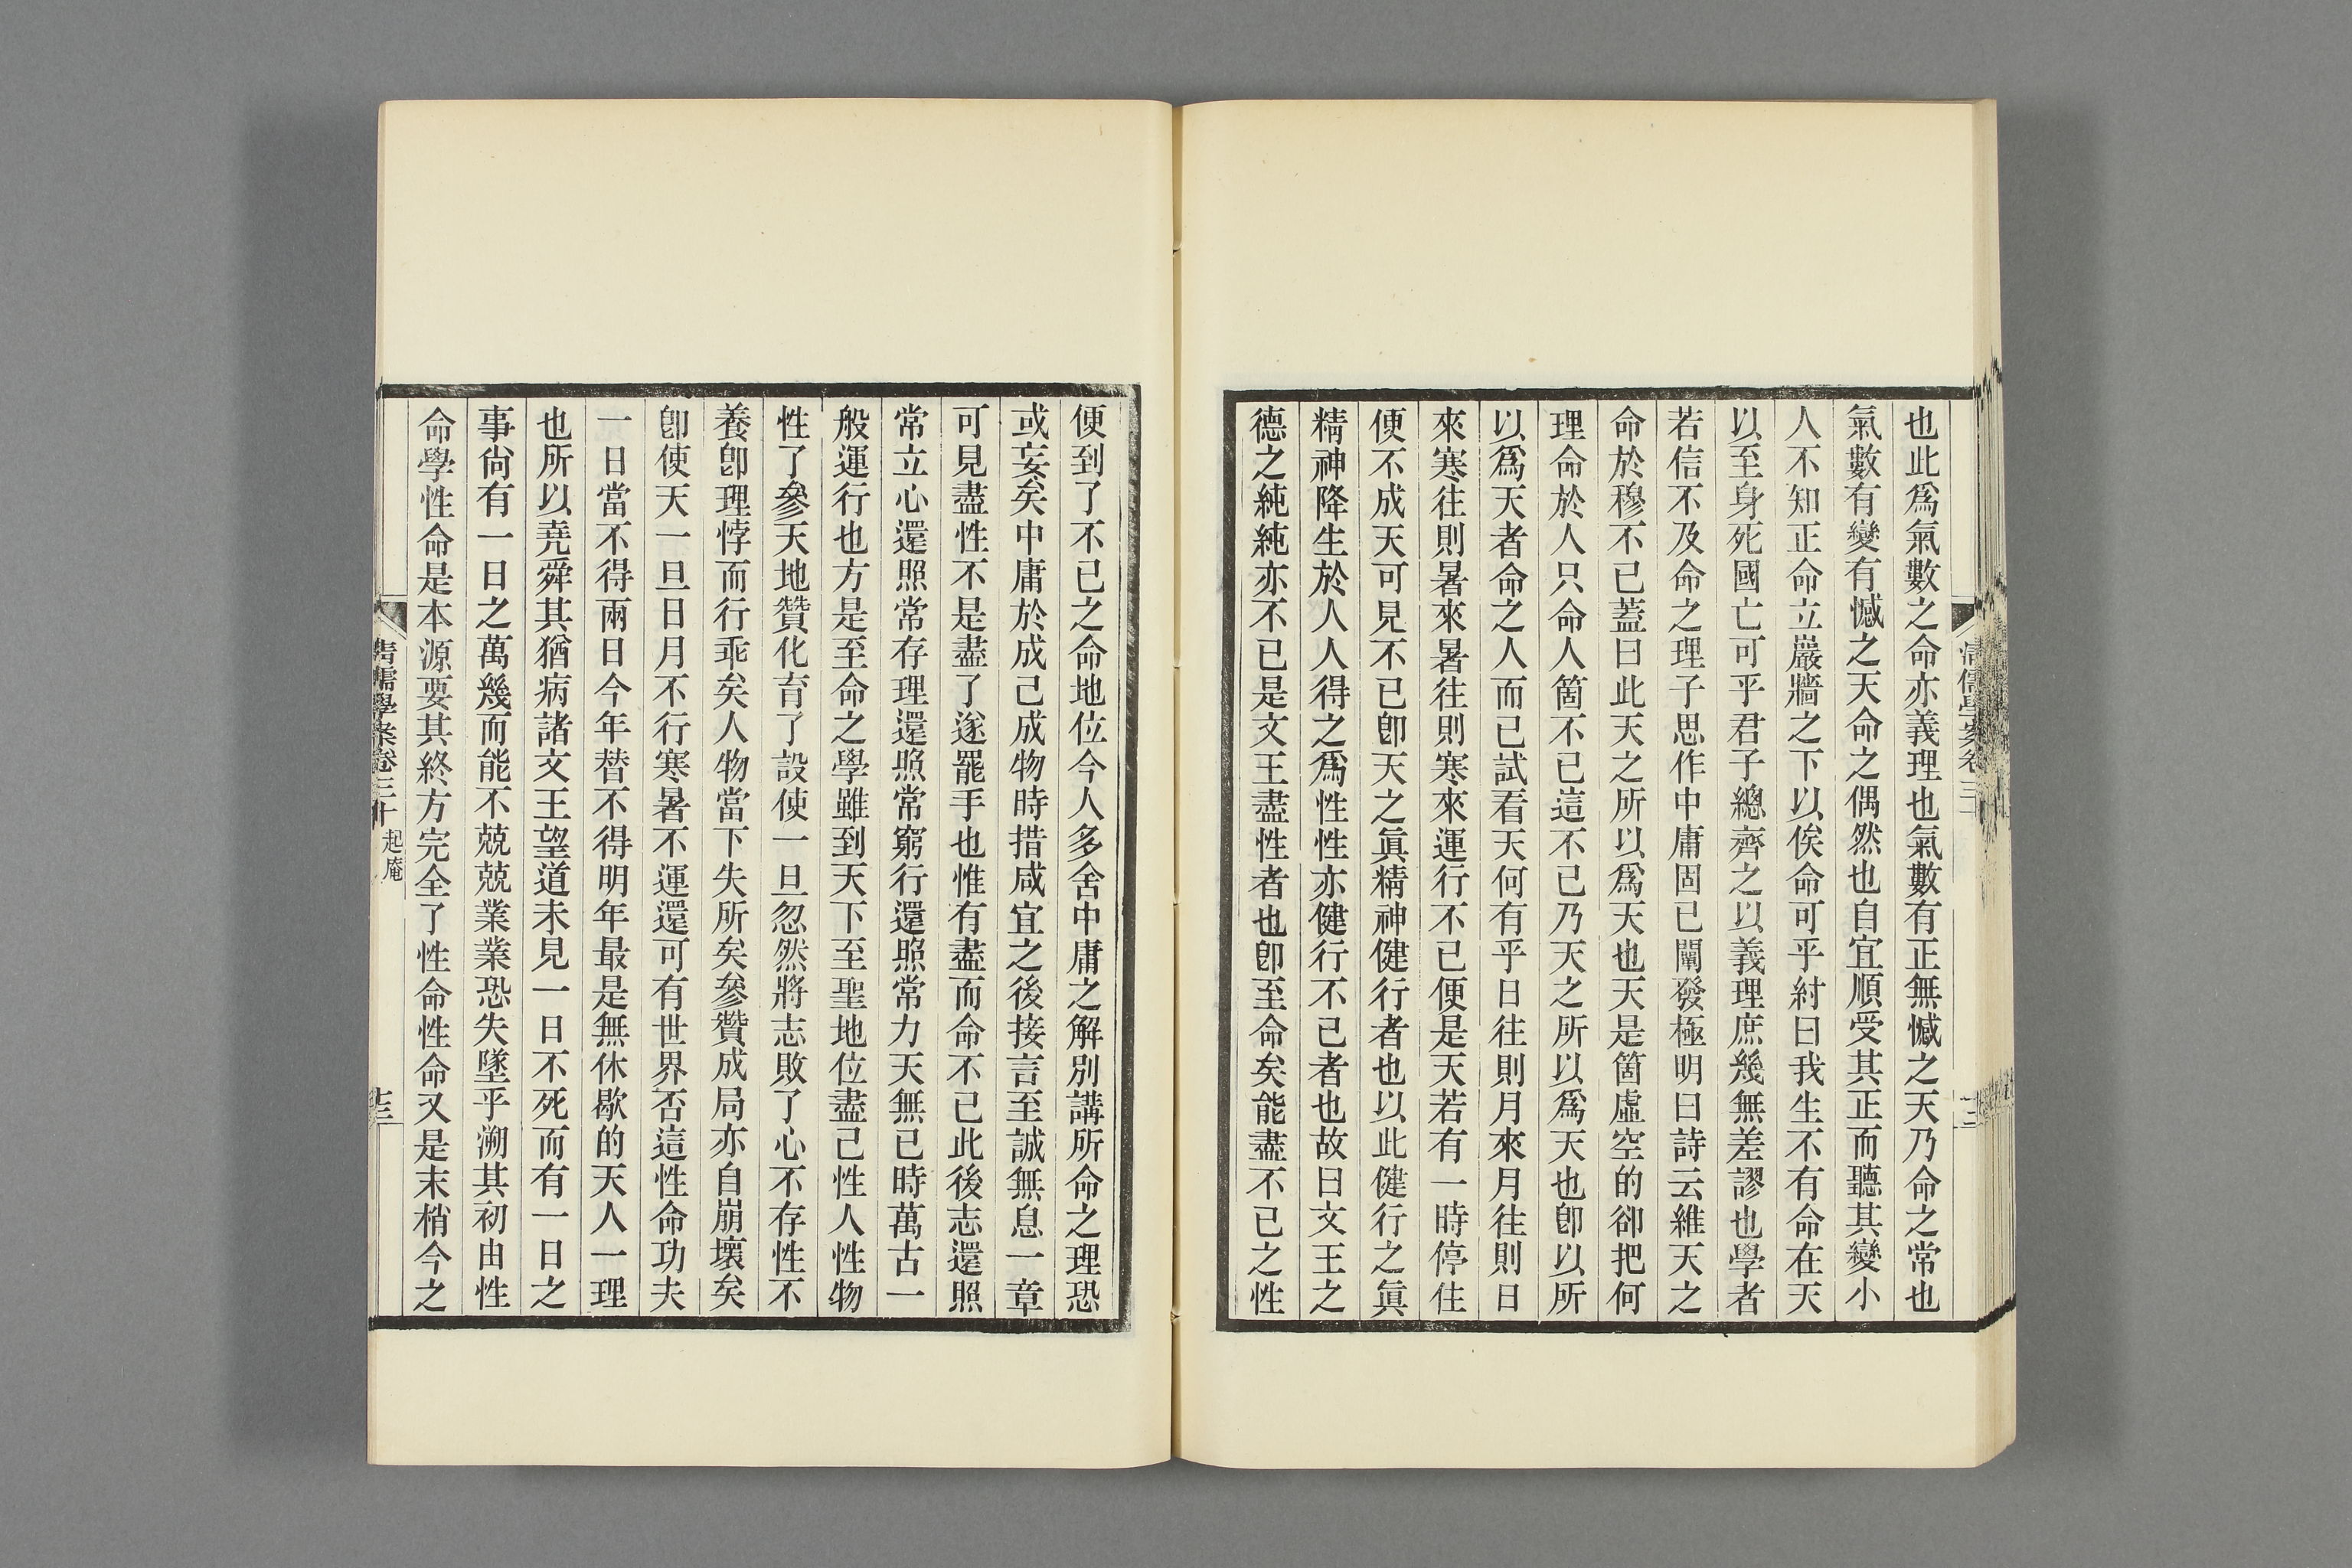 也此爲氣數之命亦義理也氣數有正無憾之天乃命之常也
氣數有變有憾之天命之偶然也自宜順受其正而聽其變小
人不知正命立巖牆之下以俟命可乎紂曰我生不有命在天
以至身死國亡可乎君子總齊之以義理庶幾無差謬也學者
若信不及命之理子思作中庸固已闡發極明曰詩云維天之
命於穆不已蓋曰此天之所以爲天也天是箇虛空的卻把何
理命於人只命人箇不已這不已乃天之所以爲天也卽以所
以爲天者命之人而已試看天何有乎日往則月來月往則日
來寒往則暑來暑往則寒來運行不已便是天若有一時停住
便不成天可見不已卽天之眞精神健行者也以此健行之眞
精神降生於人人得之爲性性亦健行不已者也故曰文王之
德之純純亦不已是文王盡性者也卽至命矣能盡不已之性
便到了不已之命地位今人多舍中庸之解別講所命之理恐
或妄矣中庸於成己成物時措咸宜之後接言至誠無息一章
可見盡性不是盡了遂罷手也惟有盡而命不已此後志還照
常立心還照常存理還照常窮行還照常力天無已時萬古一
般運行也方是至命之學雖到天下至聖地位盡己性人性物
性了參天地贊化育了設使一旦忽然將志敗了心不存性不
養卽理悖而行乖矣人物當下失所矣參贊成局亦自崩壞矣
卽使天一旦日月不行寒暑不運還可有世界否這性命功夫
一日當不得兩日今年替不得明年最是無休歇的天人一理
也所以堯舜其猶病諸文王望道未見一日不死而有一日之
事尙有一日之萬幾而能不兢兢業業恐失墜乎溯其初由性
命學性命是本源要其終方完全了性命性命又是末梢今之
清儒學案卷三十 起庵